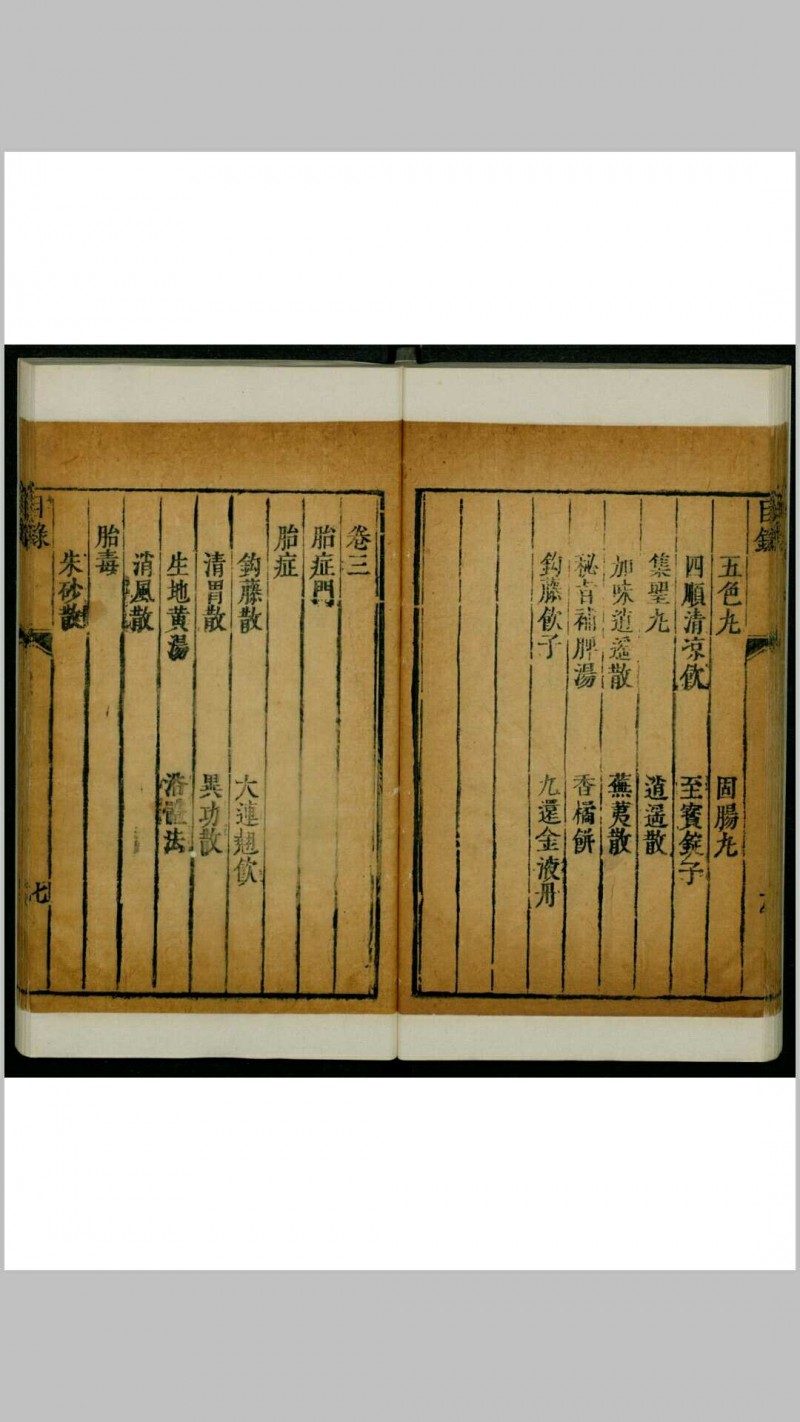 目錄
五色丸
固腸丸
四順清凉飲
至寳錠子
集聖丸
逍遥散
加味逍遥散
蕪荑散
秘旨補脾湯
香橘餅
鈎藤飲子
九還金液丹
卷三
胎症門
胎症
鈎藤散
大連翹飲
清胃散
異功散
生地黄湯
浴體法
消風散
胎毒
朱砂散
目錄
七